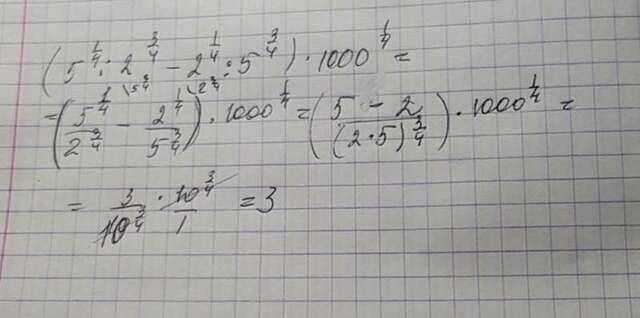 (5^{1/4} : 2^{3/4} - 2^{1/4} : 5^{3/4}) · 1000^{1/4} =
= (5^{1/4} \5^{3/4} / 2^{3/4} - 2^{1/4} \2^{3/4} / 5^{3/4}) · 1000^{1/4} = ((5 - 2) / (2·5)^{3/4}) · 1000^{1/4} =
= 3 / 10^{3/4} · 10^{3/4} / 1 = 3